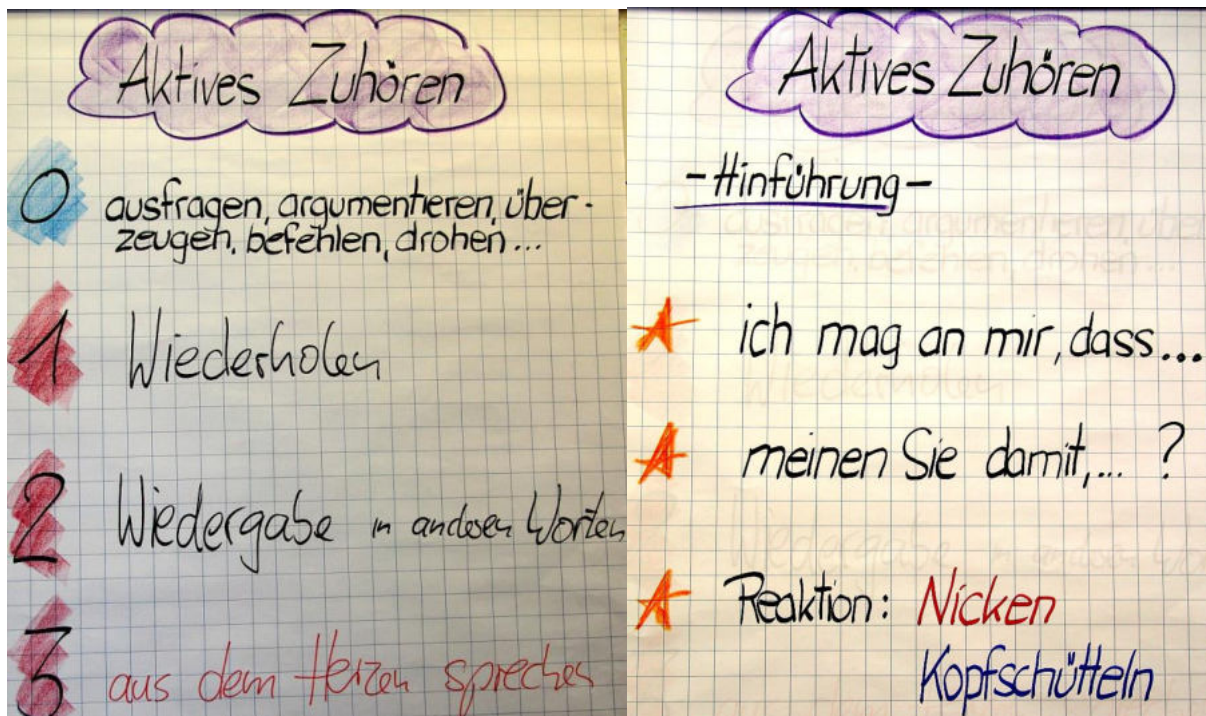 Aktives Zuhören
0 ausfragen, argumentieren, über-
zeugen, befehlen, drohen...
1 Wiederholen
2 Wiedergabe in anderen Worten
3 aus dem Herzen sprechen
Aktives Zuhören
-Hinführung-
ich mag an mir, dass...
meinen Sie damit,... ?
Reaktion: Nicken
Kopfschütteln